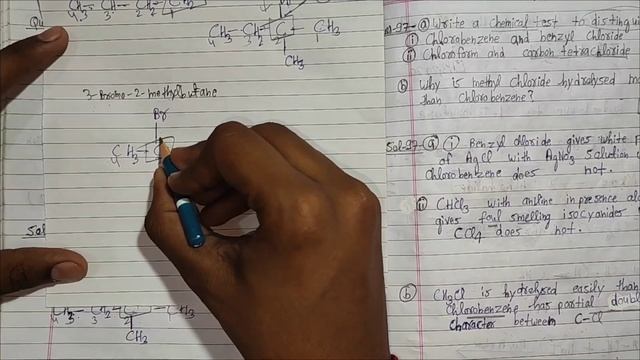 Qu
4 3 2
CH3 - CH - C - CH3
2 2
CH3
3-Bromo-2-methylbutane
Br
CH3 C
4
Sol
4 3 2
CH3
Q-97-(a) Write a chemical test to distingui
(i) Chlorobenzene and benzyl chloride
(ii) Chloroform and carbon tetrachloride
(b) Why is methyl chloride hydrolysed mo
than chlorobenzene?
Sol-97-(a) (i) Benzyl chloride gives white p
of AgCl with AgNO3 solution
chlorobenzene does not.
(ii) CHCl3 with aniline in presence al
gives foul smelling isocyanides
CCl4 does not.
(b) CH3Cl is hydrolysed easily than
Chlorobenzene has partial double
character between C-Cl